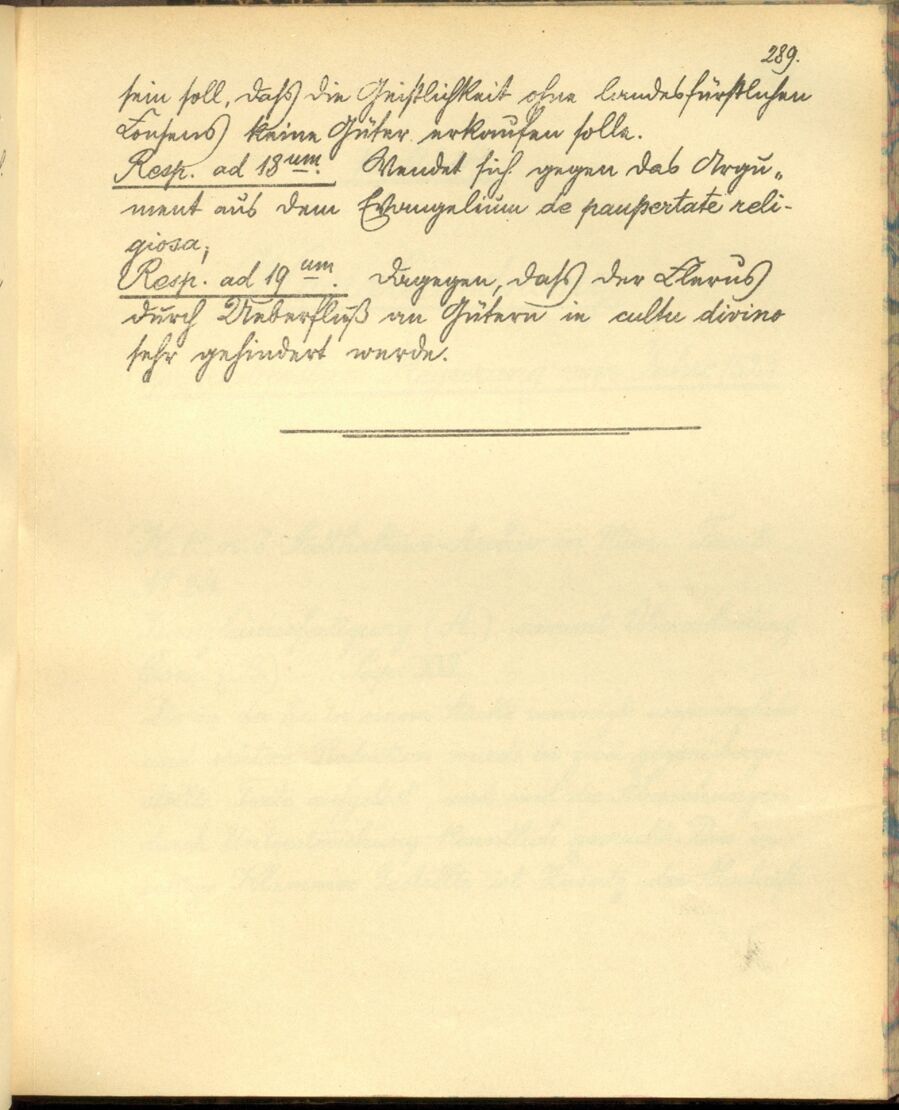 289.
sein soll, daß die Geistlichkeit ohne landesfürstlichen
Consens keine Güter erkaufen solle.
Resp. ad 18um. Wendet sich gegen das Argu„
ment aus dem Evangelium de paupertate reli-
giosa;
Resp. ad 19um. Dagegen, daß der Clerus
durch Ueberfluß an Gütern in cultu divino
sehr gehindert werde.